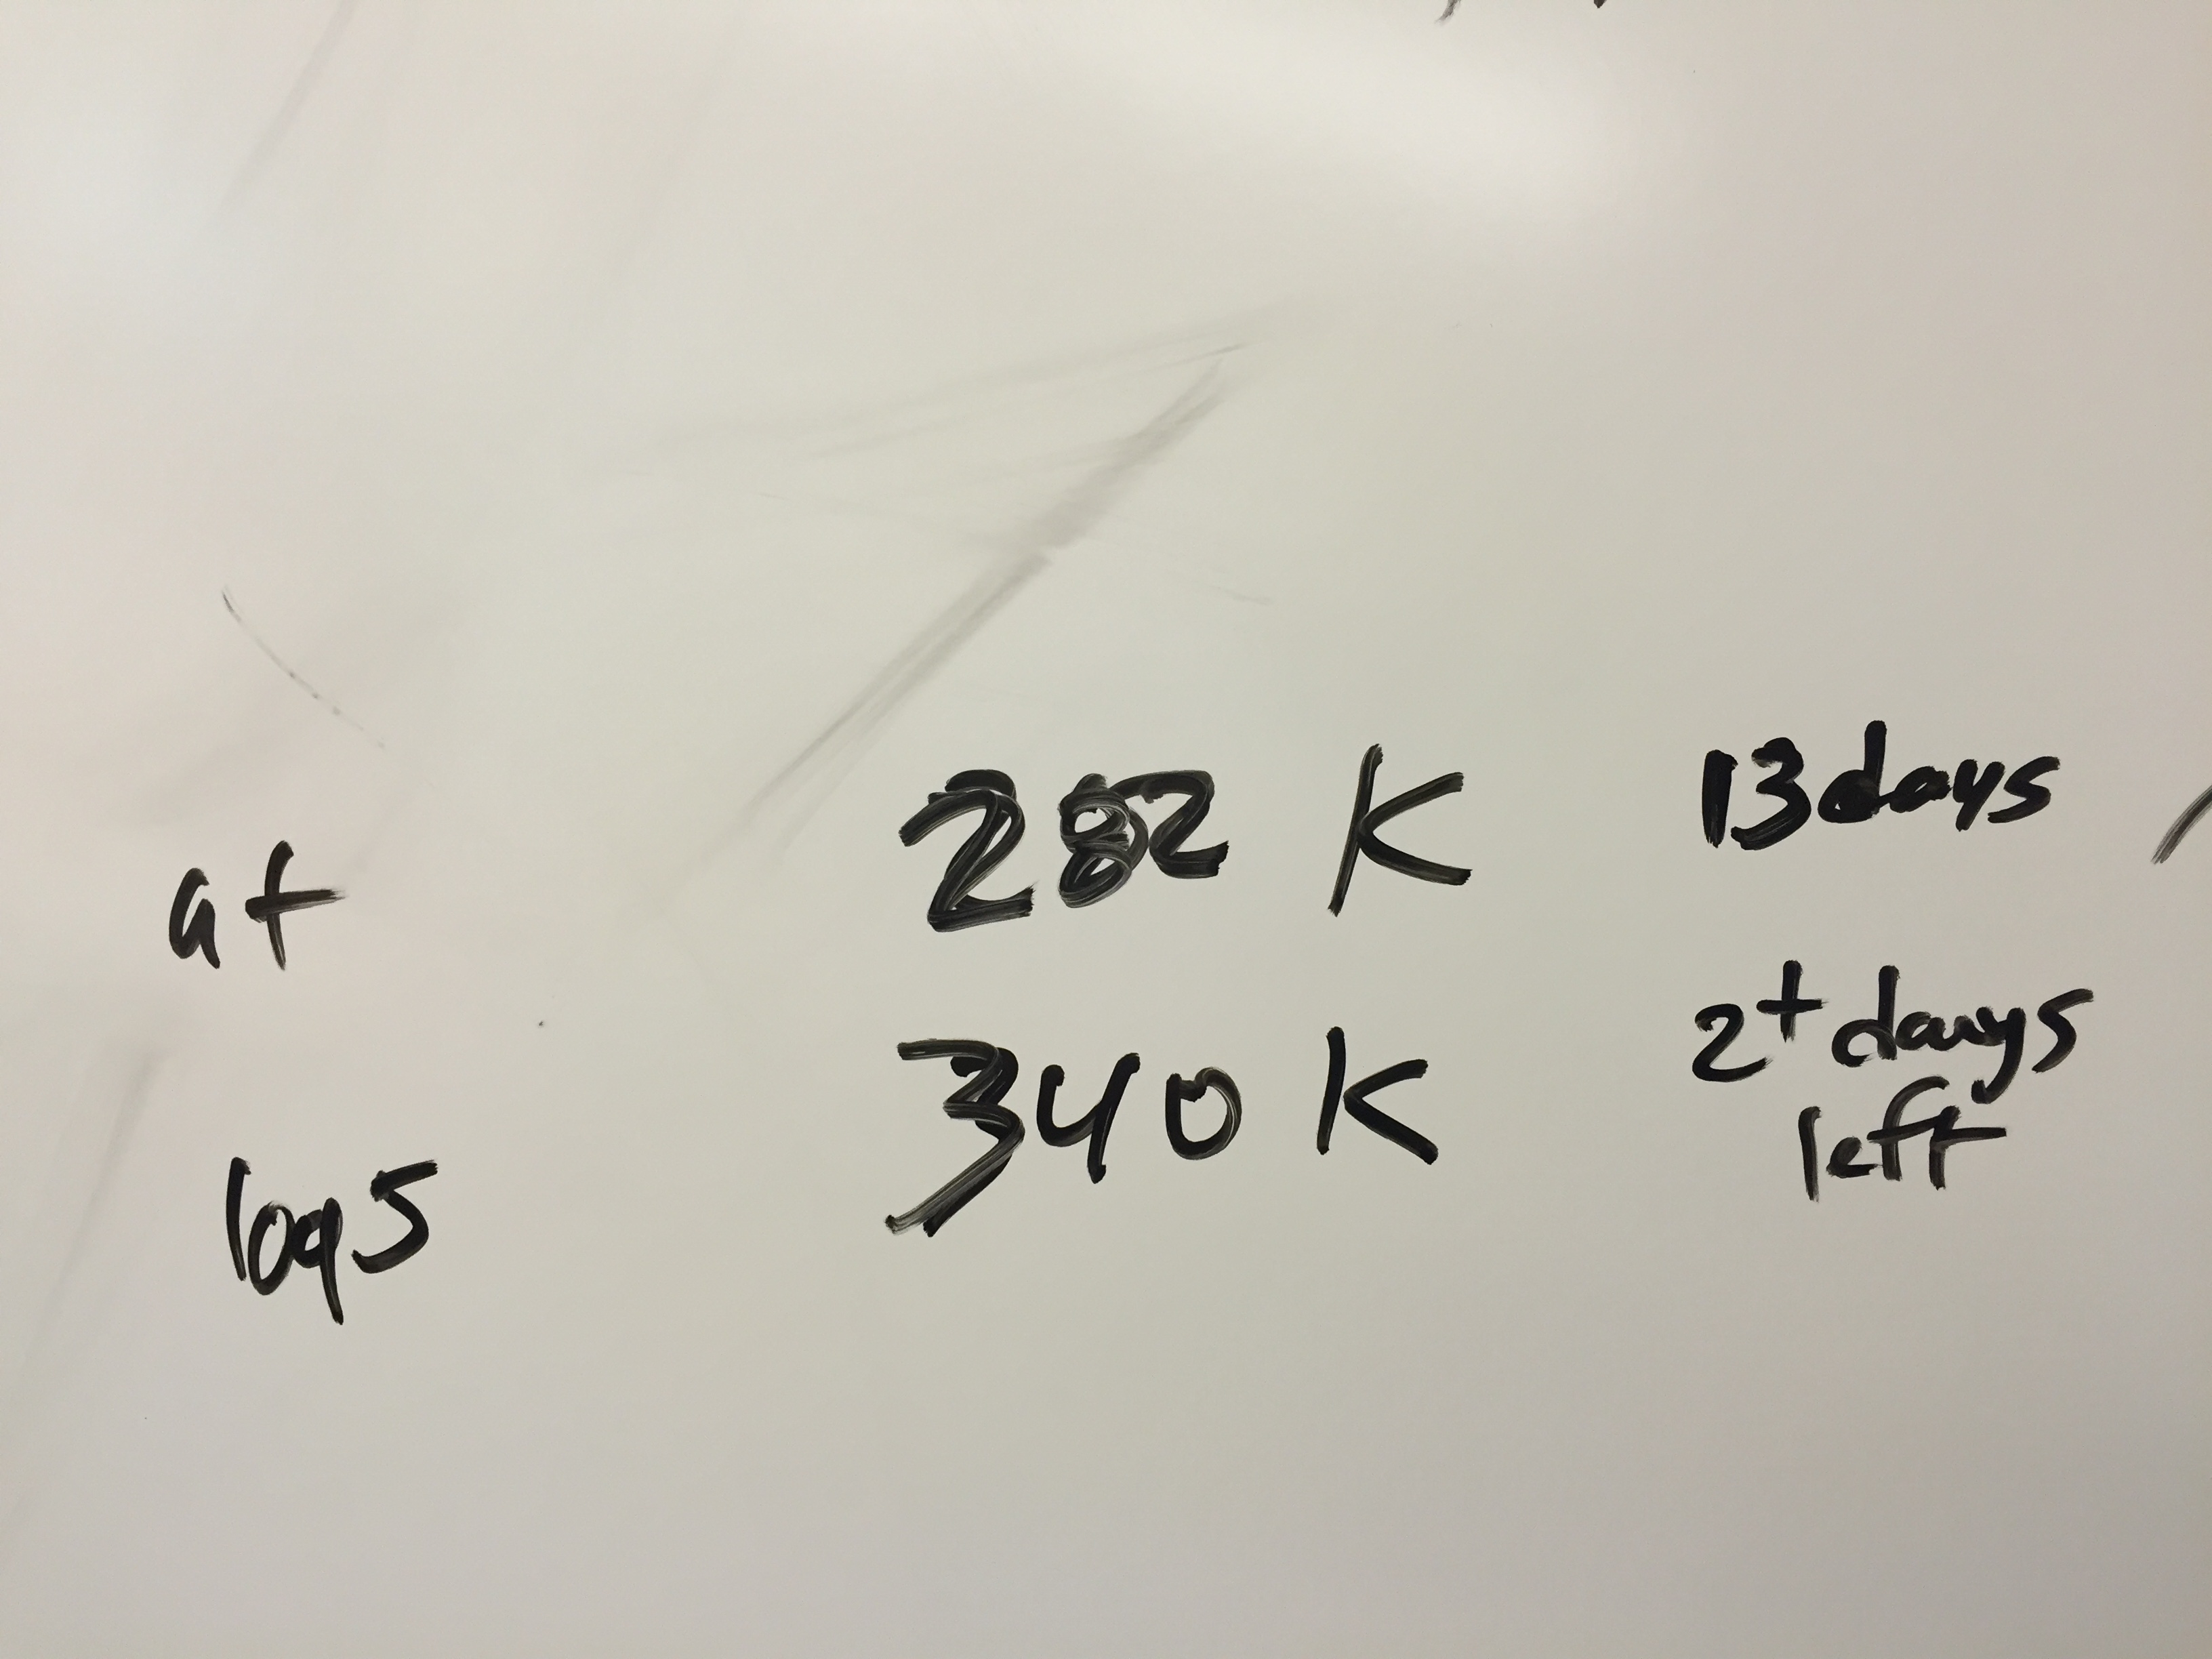 at 282 K 13 days
logs 340 K 2+ days
left